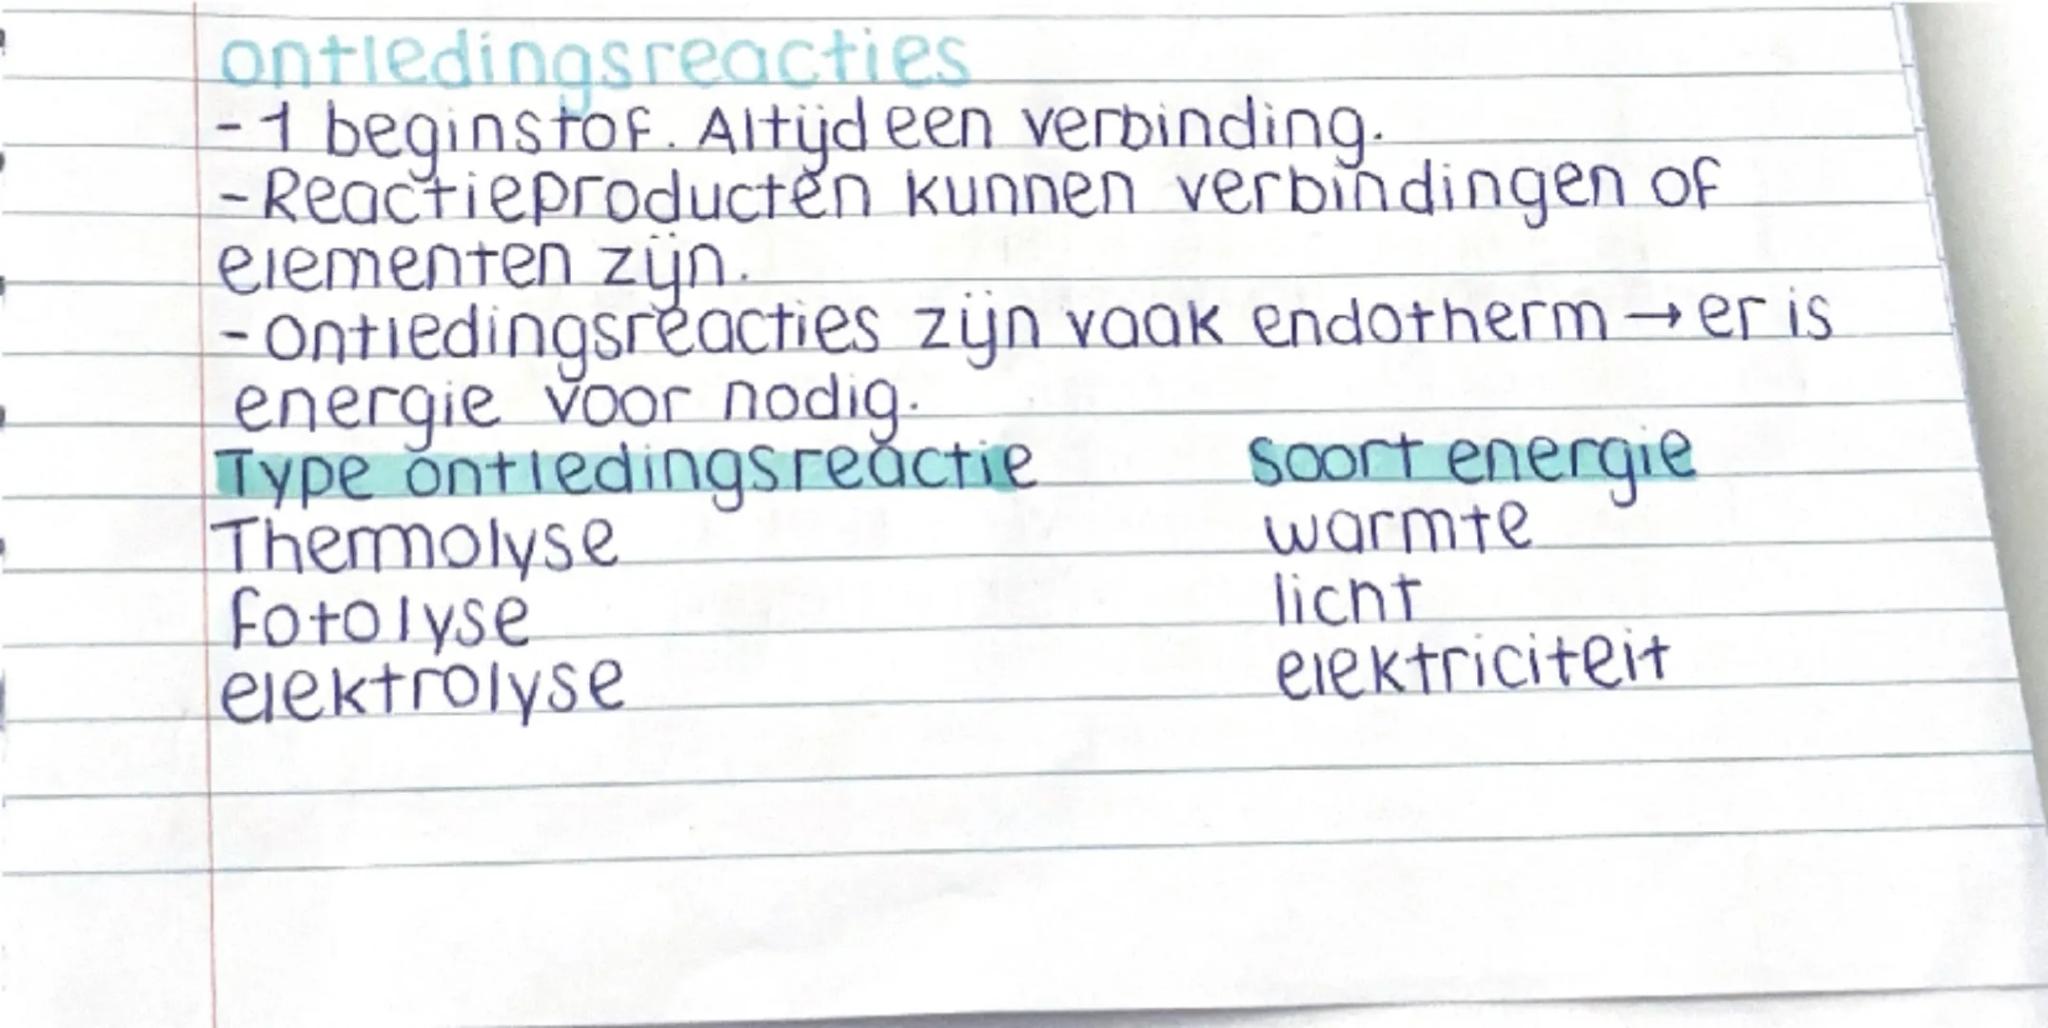 ontledingsreacties
- 1 beginstof. Altijd een verbinding.
- Reactieproducten kunnen verbindingen of
elementen zijn.
- ontledingsreacties zijn vaak endotherm → er is
energie voor nodig.
Type ontledingsreactie soort energie
Thermolyse warmte
fotolyse licht
elektrolyse elektriciteit